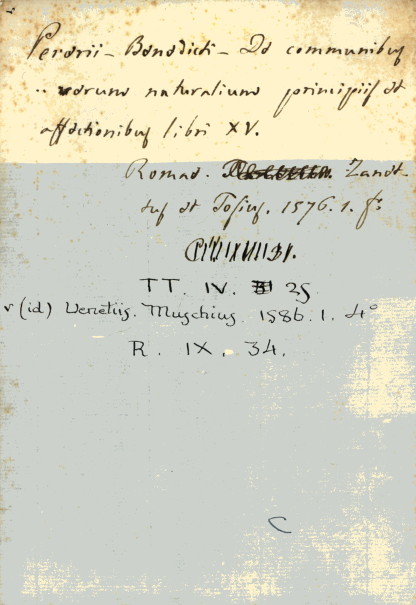 Pererii - Benedicti - De communibus
rerum naturalium principiis et
affectionibus libri XV.
Romae. Zanet-
tus et Tosius. 1576. 1. fº
TT. IV. 25
v (id) Venetiis. Muschius. 1586. 1. 4º
R. IX. 34.